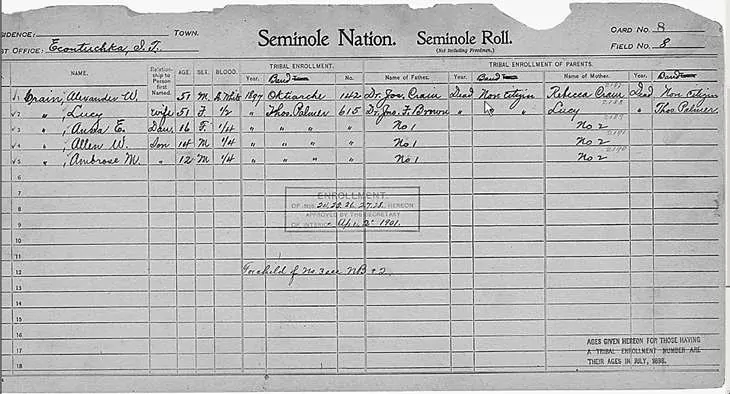 SIDENCE: TOWN.
ST OFFICE: Econtuchka, I.T.
Seminole Nation. Seminole Roll.
(Not Including Freedmen.)
CARD NO. 8
FIELD NO. 8
NAME. Relationship to Person first Named. AGE. SEX. BLOOD. TRIBAL ENROLLMENT. TRIBAL ENROLLMENT OF PARENTS.
Year. Band No. Name of Father. Year. Band Name of Mother. Year. Band
1 Crain, Alexander W. 51 M. 1897 142 Dr. Jos. Crain Dead Non Citizen Rebecca Crain Dead Non Citizen
2 " , Lucy Wife 51 F. 1/2 " Thos. Palmer 615 Dr. Jas. F. Brown " " " Lucy " Thos Palmer.
3 " , E. Dau. 16 F. 1/4 " " " No 1 No 2
4 " , Allen W. Son 14 M 1/4 " " " No 1 No 2
5 " , Ambrose M. " 12 M 1/4 " " " No 1 No 2
6
7
8
9
10
11
12 For child of No. 3 see NB # 2
13
14
15
16
17
18
ENROLLMENT
OF NOS. HEREON
APPROVED BY THE SECRETARY
OF INTERIOR Apr. 2 1901.
AGES GIVEN HEREON FOR THOSE HAVING
A TRIBAL ENROLLMENT NUMBER ARE
THEIR AGES IN JULY, 1898.